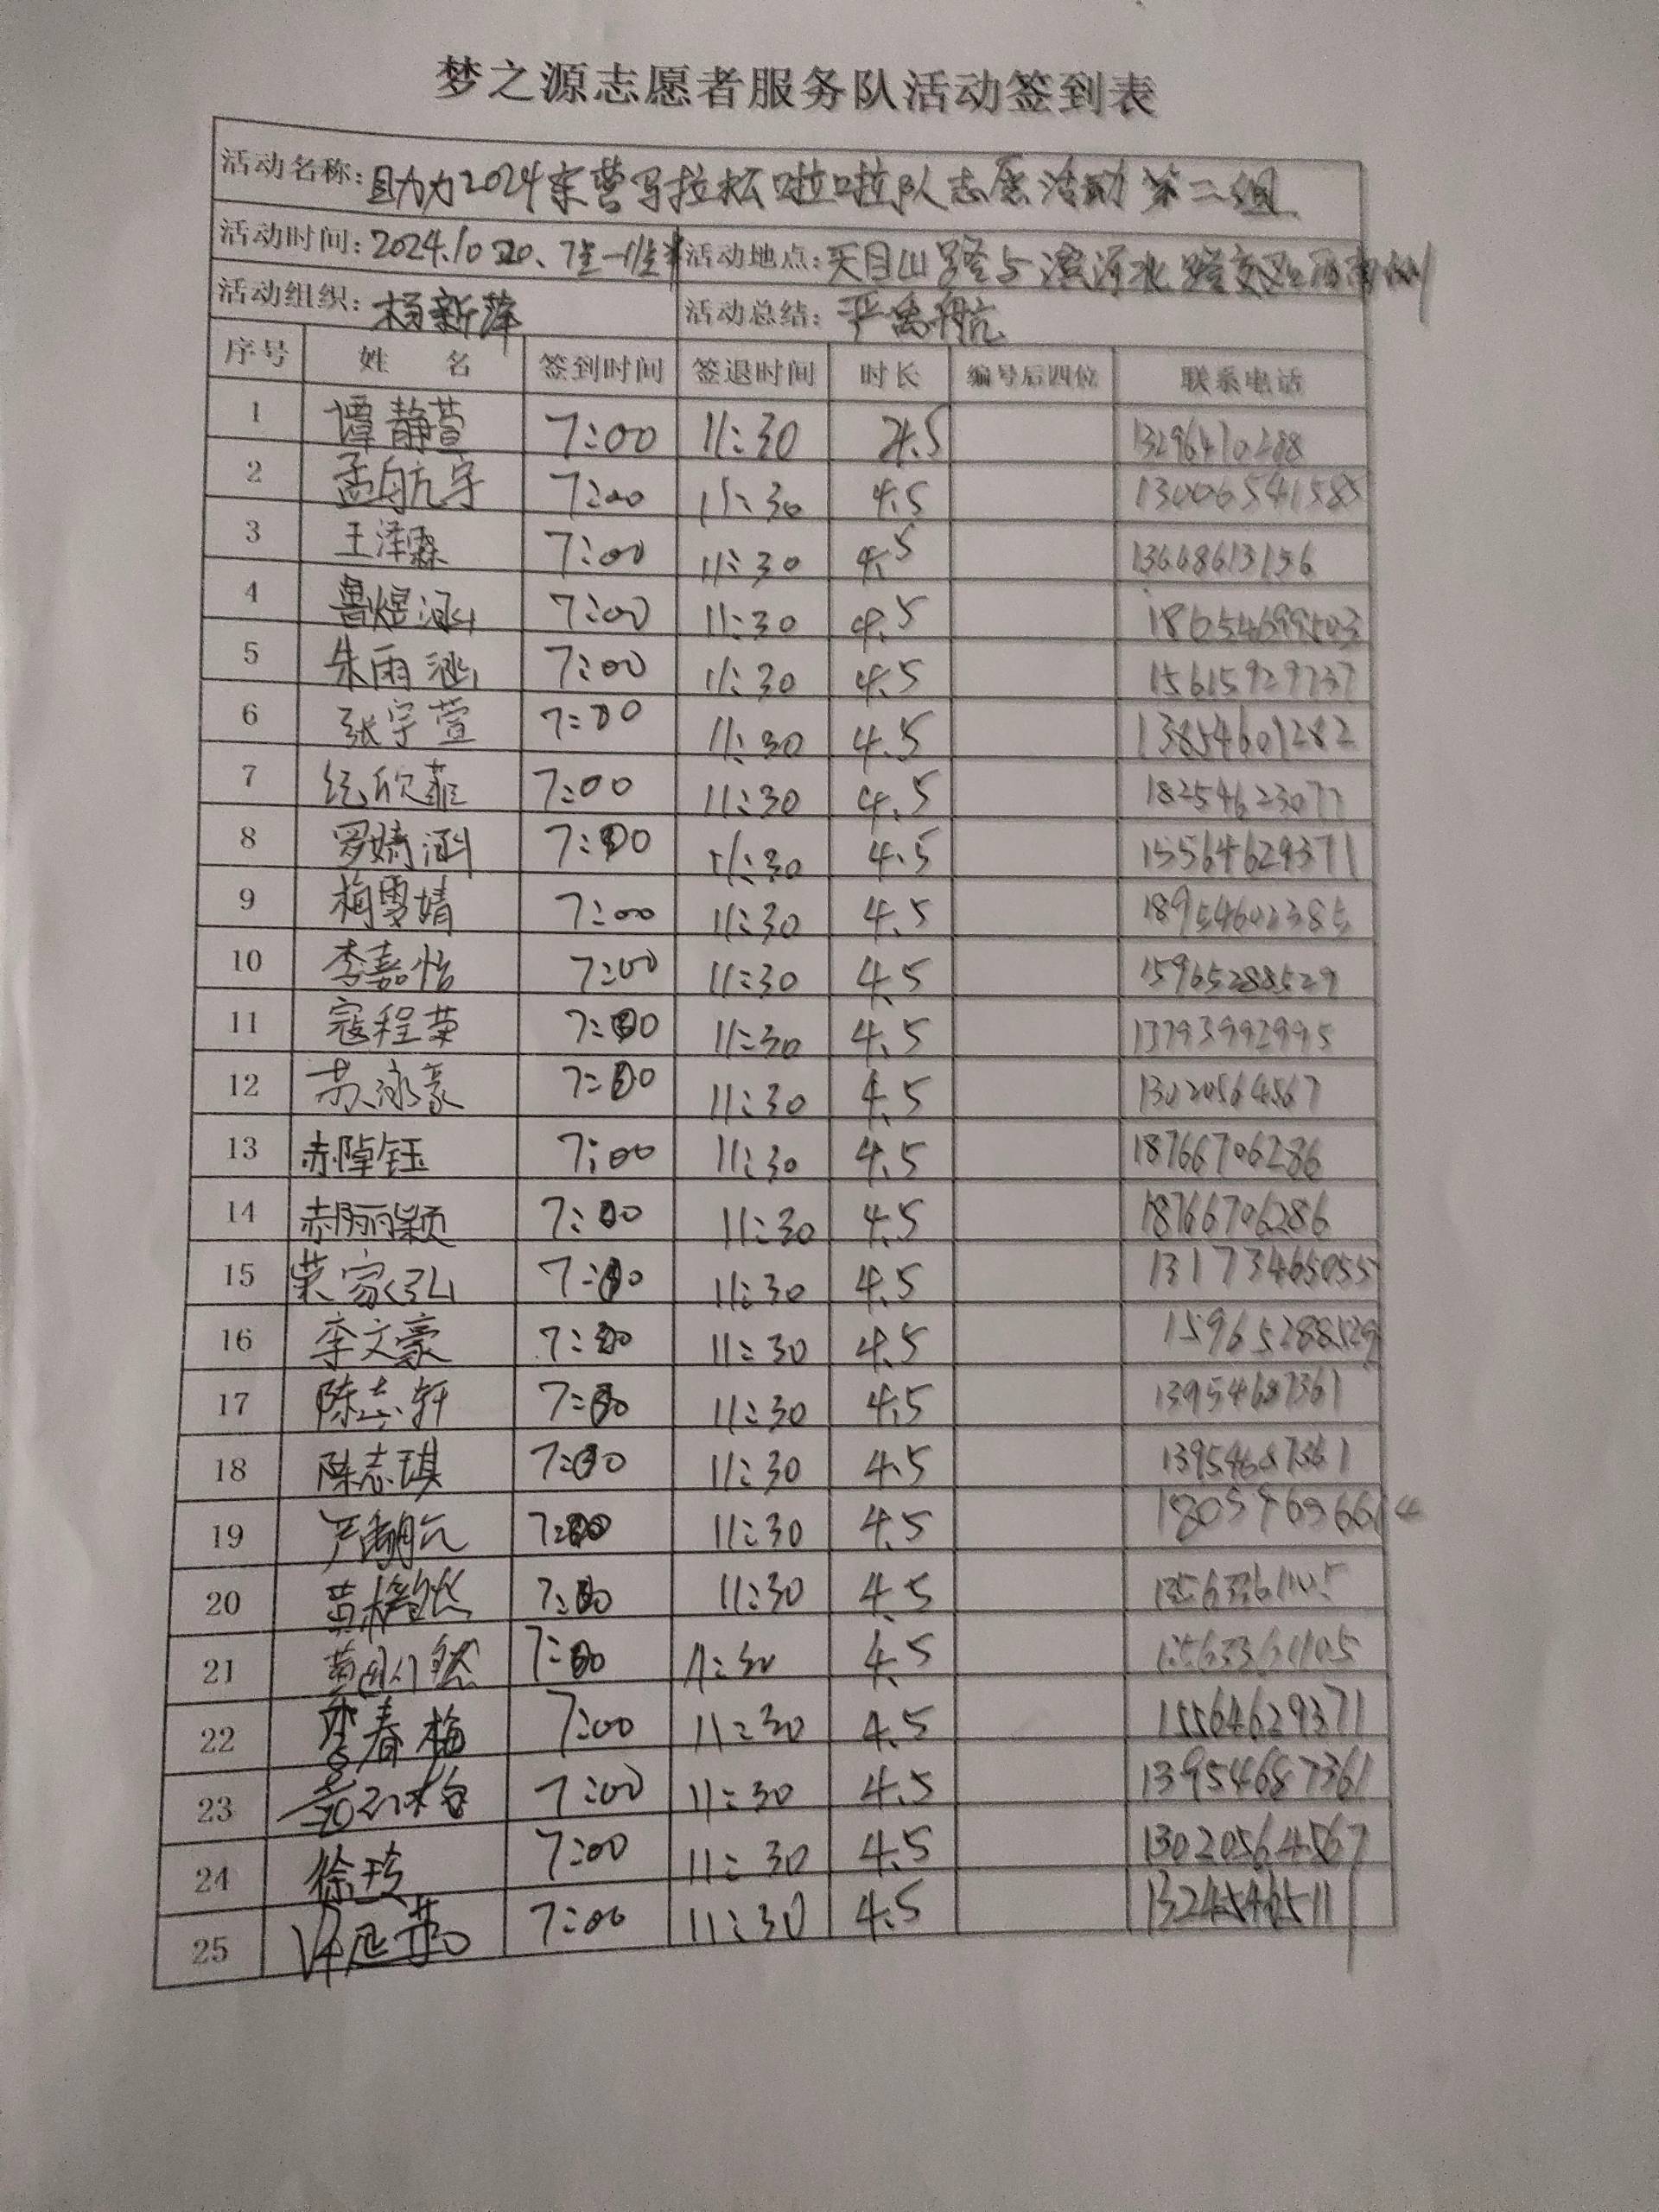 梦之源志愿者服务队活动签到表
活动名称:助力2024东营马拉松啦啦队志愿活动第二组
活动时间:2024.10.20、7点-11点半 活动地点:天目山路与 路交叉口西南侧
活动组织:杨新萍 活动总结:严禹航
序号 姓 名 签到时间 签退时间 时长 编号后四位 联系电话
1 谭静萱 7:00 11:30 4.5
2 孟航宇 7:00 11:30 4.5 13006541585
3 王泽霖 7:00 11:30 4.5
4 鲁煜涵 7:00 11:30 4.5
5 朱雨涵 7:00 11:30 4.5 15615929737
6 张宇萱 7:00 11:30 4.5 13854601282
7 纪欣菲 7:00 11:30 4.5 18254623077
8 罗婧涵 7:00 11:30 4.5 15564629371
9 梅雯婧 7:00 11:30 4.5 18954602385
10 李嘉怡 7:00 11:30 4.5 15965288529
11 寇程荣 7:00 11:30 4.5 13793992995
12 苏泳豪 7:00 11:30 4.5 13020564567
13 7:00 11:30 4.5 18766706286
14 郝丽颖 7:00 11:30 4.5 18766706286
15 荣家弘 7:00 11:30 4.5 13173465055
16 李文豪 7:00 11:30 4.5 15965288529
17 陈志轩 7:00 11:30 4.5 13954687361
18 陈志琪 7:00 11:30 4.5 13954687361
19 严禹航 7:00 11:30 4.5
20 7:00 11:30 4.5 13563361105
21 7:00 11:30 4.5 13563361105
22 李春梅 7:00 11:30 4.5 15564629371
23 7:00 11:30 4.5 13954687361
24 徐玲 7:00 11:30 4.5 13020564567
25 7:00 11:30 4.5